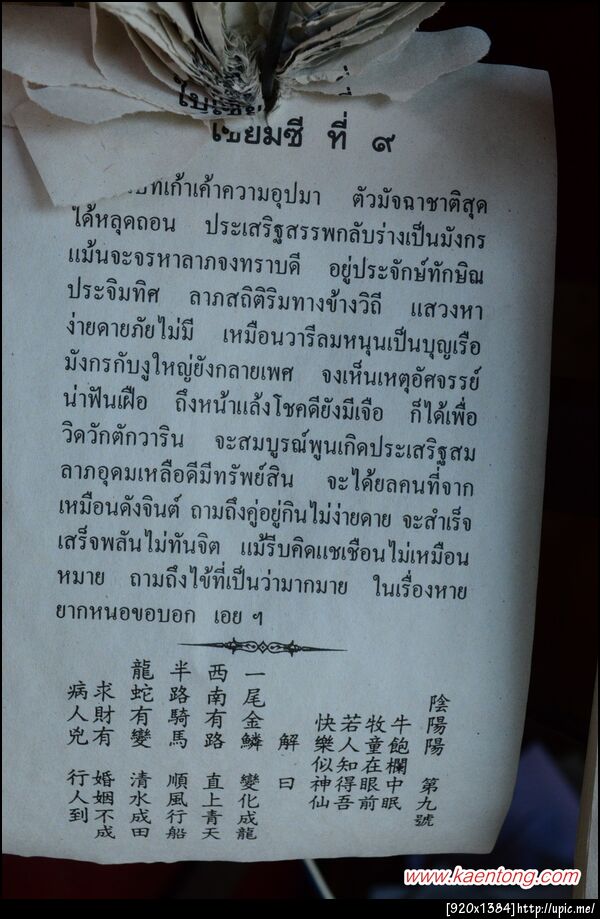 ใบเซีย
เซียมซี ที่ ๙
ใบที่เก้าเค้าความอุปมา ตัวมัจฉาชาติสุด
ได้หลุดถอน ประเสริฐสรรพกลับร่างเป็นมังกร
แม้นจะจรหาลาภจงทราบดี อยู่ประจักษ์ทักษิณ
ประจิมทิศ ลาภสถิติริมทางข้างวิถี แสวงหา
ง่ายดายภัยไม่มี เหมือนวารีลมหนุนเป็นบุญเรือ
มังกรกับงูใหญ่ยังกลายเพศ จงเห็นเหตุอัศจรรย์
น่าฟันเฝือ ถึงหน้าแล้งโชคดียังมีเจือ ก็ได้เพื่อ
วิดวักตักวาริน จะสมบูรณ์พูนเกิดประเสริฐสม
ลาภอุดมเหลือดีมีทรัพย์สิน จะได้ยลคนที่จาก
เหมือนดังจินต์ ถามถึงคู่อยู่กินไม่ง่ายดาย จะสำเร็จ
เสร็จพลันไม่ทันจิต แม้รีบคิดแชเชือนไม่เหมือน
หมาย ถามถึงไข้ที่เป็นว่ามากมาย ในเรื่องหาย
ยากหนอขอบอก เอย ฯ
陰陽陽 第九號
牛飽欄中眠
牧童在眼前
若人知得吾
快樂似神仙
解曰
一尾金鱗 變化成龍
西南有路 直上青天
半路騎馬 順風行船
龍蛇有變 清水成田
求財有 婚姻不成
病人兇 行人到
www.kaentong.com
[920x1384]http://upic.me/